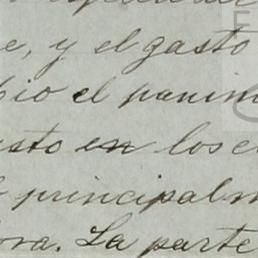 e, y el gasto
bio el panim
sto en los e
principalm
ora. La parte